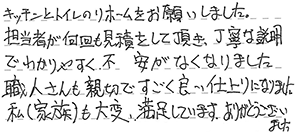 キッチンとトイレのリホームをお願いしました。
担当者が何回も見積をして頂き、丁寧な説明
でわかりやすく不安がなくなりました
職人さんも親切ですごく良い仕上りになりました
私(家族)も大変、満足しています。ありがとうござい
ました